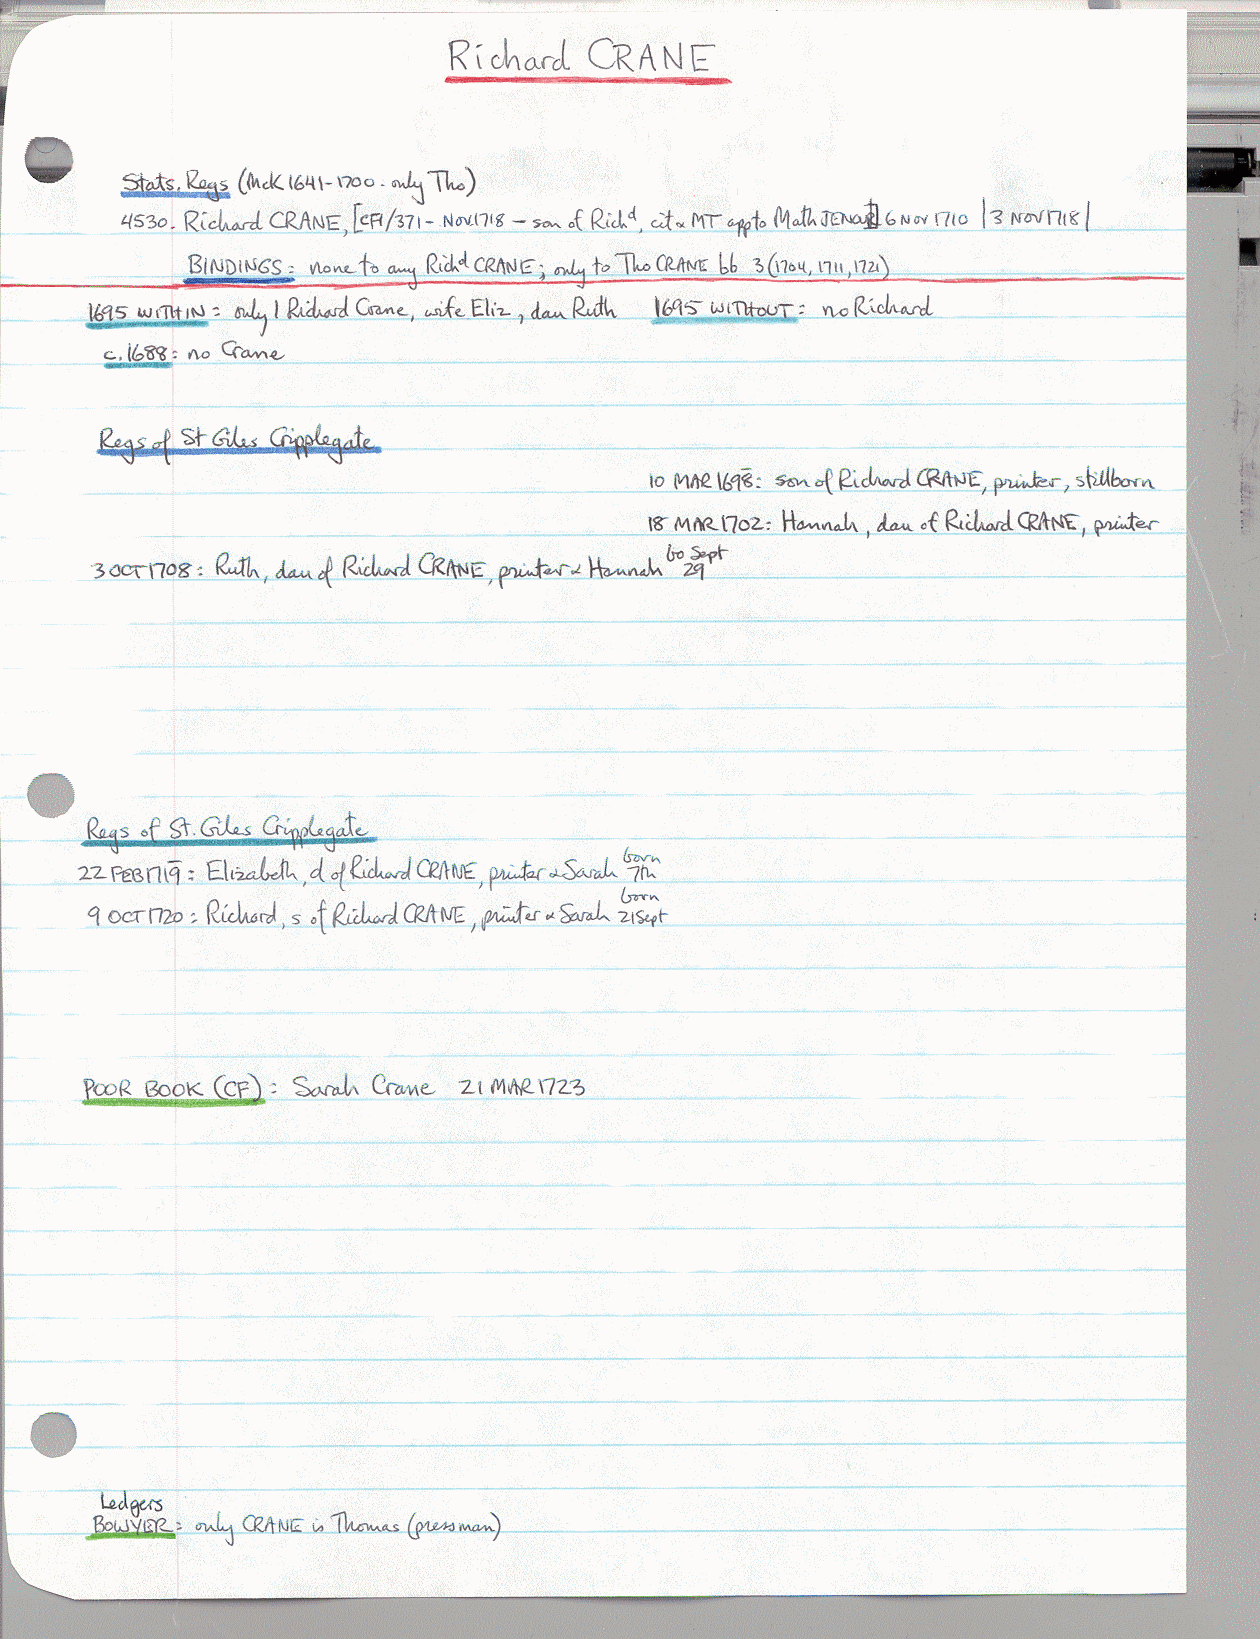 Richard CRANE
Stats. Regs (McK 1641-1700 - only Tho)
4530. Richard CRANE, [CF1/371 - NOV 1718 - son of Richd, cit & MT app to Math JENOUR] 6 NOV 1710 | 3 NOV 1718 |
BINDINGS: none to any Richd CRANE; only to Tho CRANE bb 3 (1704, 1711, 1721)
1695 WITHIN: only 1 Richard Crane, wife Eliz, dau Ruth 1695 WITHOUT: no Richard
c. 1688: no Crane
Regs of St Giles Cripplegate
10 MAR 1698: son of Richard CRANE, printer, stillborn
18 MAR 1702: Hannah, dau of Richard CRANE, printer
3 OCT 1708: Ruth, dau of Richard CRANE, printer & Hannah bo Sept 29
Regs of St. Giles Cripplegate
22 FEB 1719: Elizabeth, d of Richard CRANE, printer & Sarah born 7th
9 OCT 1720: Richard, s of Richard CRANE, printer & Sarah born 21 Sept
POOR BOOK (CF): Sarah Crane 21 MAR 1723
Ledgers
BOWYER: only CRANE is Thomas (pressman)